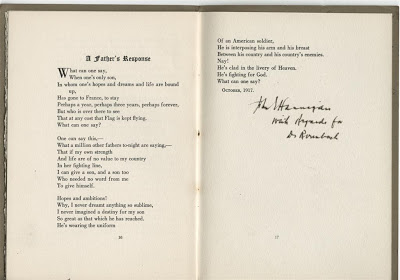 A Father's Response
What can one say,
When one's only son,
In whom one's hopes and dreams and life are bound
up,
Has gone to France, to stay
Perhaps a year, perhaps three years, perhaps forever,
But who is over there to see
That at any cost that Flag is kept flying.
What can one say?
One can say this,—
What a million other fathers to-night are saying,—
That if my own strength
And life are of no value to my country
In her fighting line,
I can give a son, and a son too
Who needed no word from me
To give himself.
Hopes and ambitions!
Why, I never dreamt anything so sublime,
I never imagined a destiny for my son
So great as that which he has reached.
He's wearing the uniform
16
Of an American soldier,
He is interposing his arm and his breast
Between his country and his country's enemies.
Nay!
He's clad in the livery of Heaven.
He's fighting for God.
What can one say?
October, 1917.
With Regards for
Dr
17